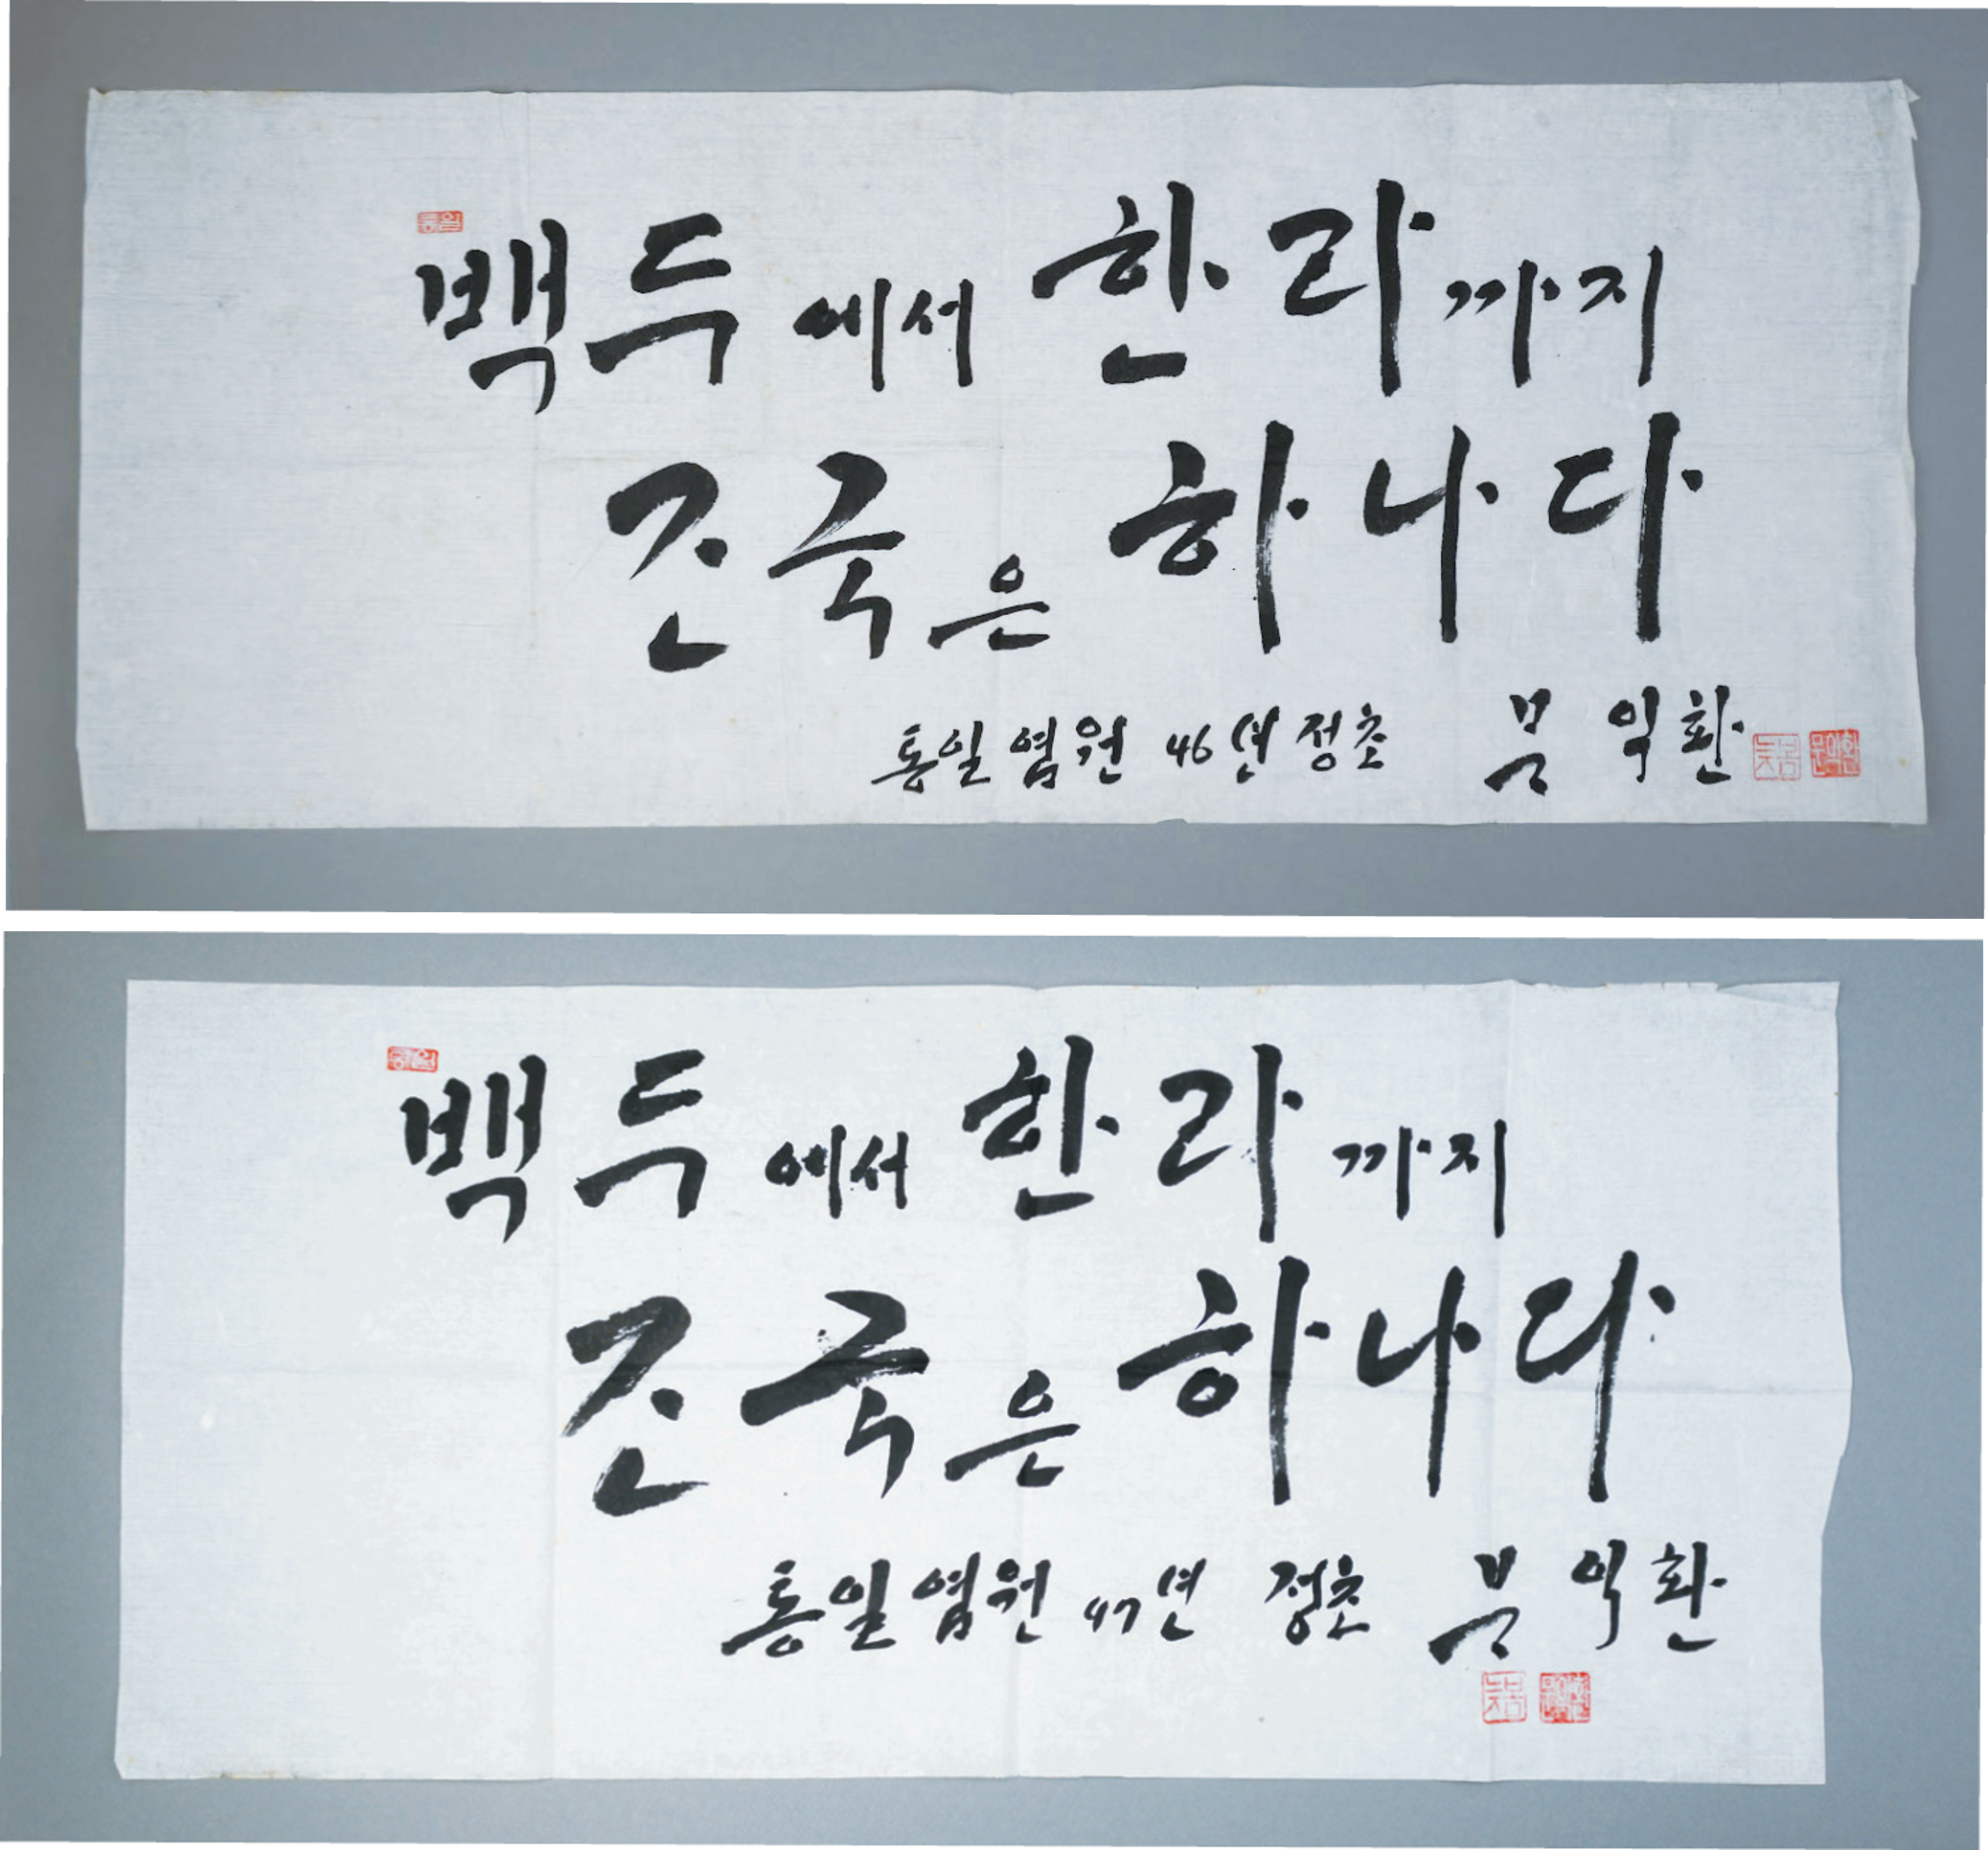 통일
백두에서 한라까지
조국은 하나다
통일염원 46년 정초 문익환
늦봄 문익환
통일
백두에서 한라까지
조국은 하나다
통일염원 47년 정초 문익환
늦봄 문익환